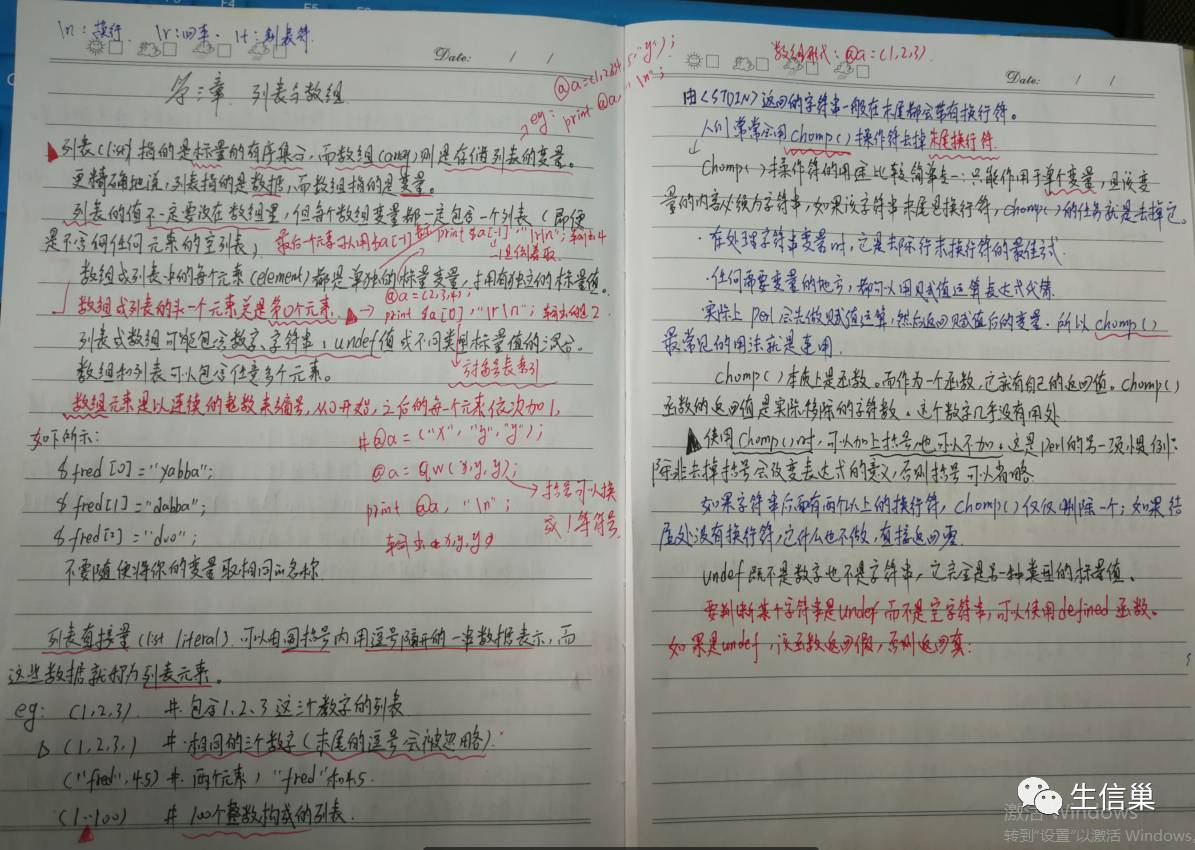 \n：换行. \r：回车. \t：制表符.
Date: / /
第三章. 列表与数组
eg: @a=(1,2,3,4,5,"y");
print @a, "\n";
列表(list)指的是标量的有序集合,而数组(array)则是存储列表的变量。
更精确地说,列表指的是数据,而数组指的是变量。
列表的值不一定要放在数组里,但每个数组变量都一定包含一个列表(即便
是不含任何元素的空列表),
最后一个元素可以用$a[-1]
print $a[-1],"\r\n";
-1是倒着取.
数组或列表中的每个元素(element)都是单独的标量变量,拥有独立的标量值。
@a=(2,3,4);
数组或列表的头一个元素总是第0个元素.
→ print $a[0],"\r\n"; 输出的是2.
列表或数组可能包含数字,字符串,undef值或不同类型标量值的混合。
数组和列表可以包含任意多个元素。
数组元素是以连续的整数来编号,从0开始,之后的每一个元素依次加1,
如下所示:
$fred[0]="yabba";
$fred[1]="dabba";
$fred[2]="duo";
不要随便将你的变量取相同的名称
#@a=("x","y","y");
@a=qw(x,y,y);
→ 括号可以换
或!等符号
print @a, "\n";
输出x,y,y
列表直接量(list literal).可以由圆括号内用逗号隔开的一串数据表示,而
这些数据就称为列表元素。
eg: (1,2,3). #.包含1、2、3这三个数字的列表
(1,2,3,) #.相同的三个数字(末尾的逗号会被忽略).
("fred",4.5) #.两个元素,"fred"和4.5.
(1..100) #100个整数构成的列表.
数组形式:@a=(1,2,3).
Date: / /
由<STDIN>返回的字符串一般在末尾都会带有换行符。
人们常常会用chomp()操作符去掉末尾换行符.
chomp()操作符的用途比较简单:只能作用于单个变量,且该变
量的内容必须为字符串,如果该字符串末尾是换行符,chomp()的任务就是去掉它。
·在处理字符串变量时,它是去除行末换行符的最佳方式.
·任何需要变量的地方,都可以用赋值运算表达式代替.
·实际上perl会先做赋值运算,然后返回赋值后的变量.所以chomp()
最常见的用法就是连用.
chomp()本质上是函数。而作为一个函数,它就有自己的返回值。chomp()
函数的返回值是实际移除的字符数。这个数字几乎没有用处.
使用chomp()时,可以加上括号,也可以不加。这是perl的另一项惯例:
除非去掉括号会改变表达式的意义,否则括号可以省略.
如果字符串后面有两个以上的换行符,chomp()仅仅删除一个;如果结
尾处没有换行符,它什么也不做,直接返回零.
undef既不是数字也不是字符串,它完全是另一种类型的标量值。
要判断某个字符串是undef而不是空字符串,可以使用defined函数。
如果是undef,该函数返回假,否则返回真.
生信巢
激活 Windows
转到"设置"以激活 Windows